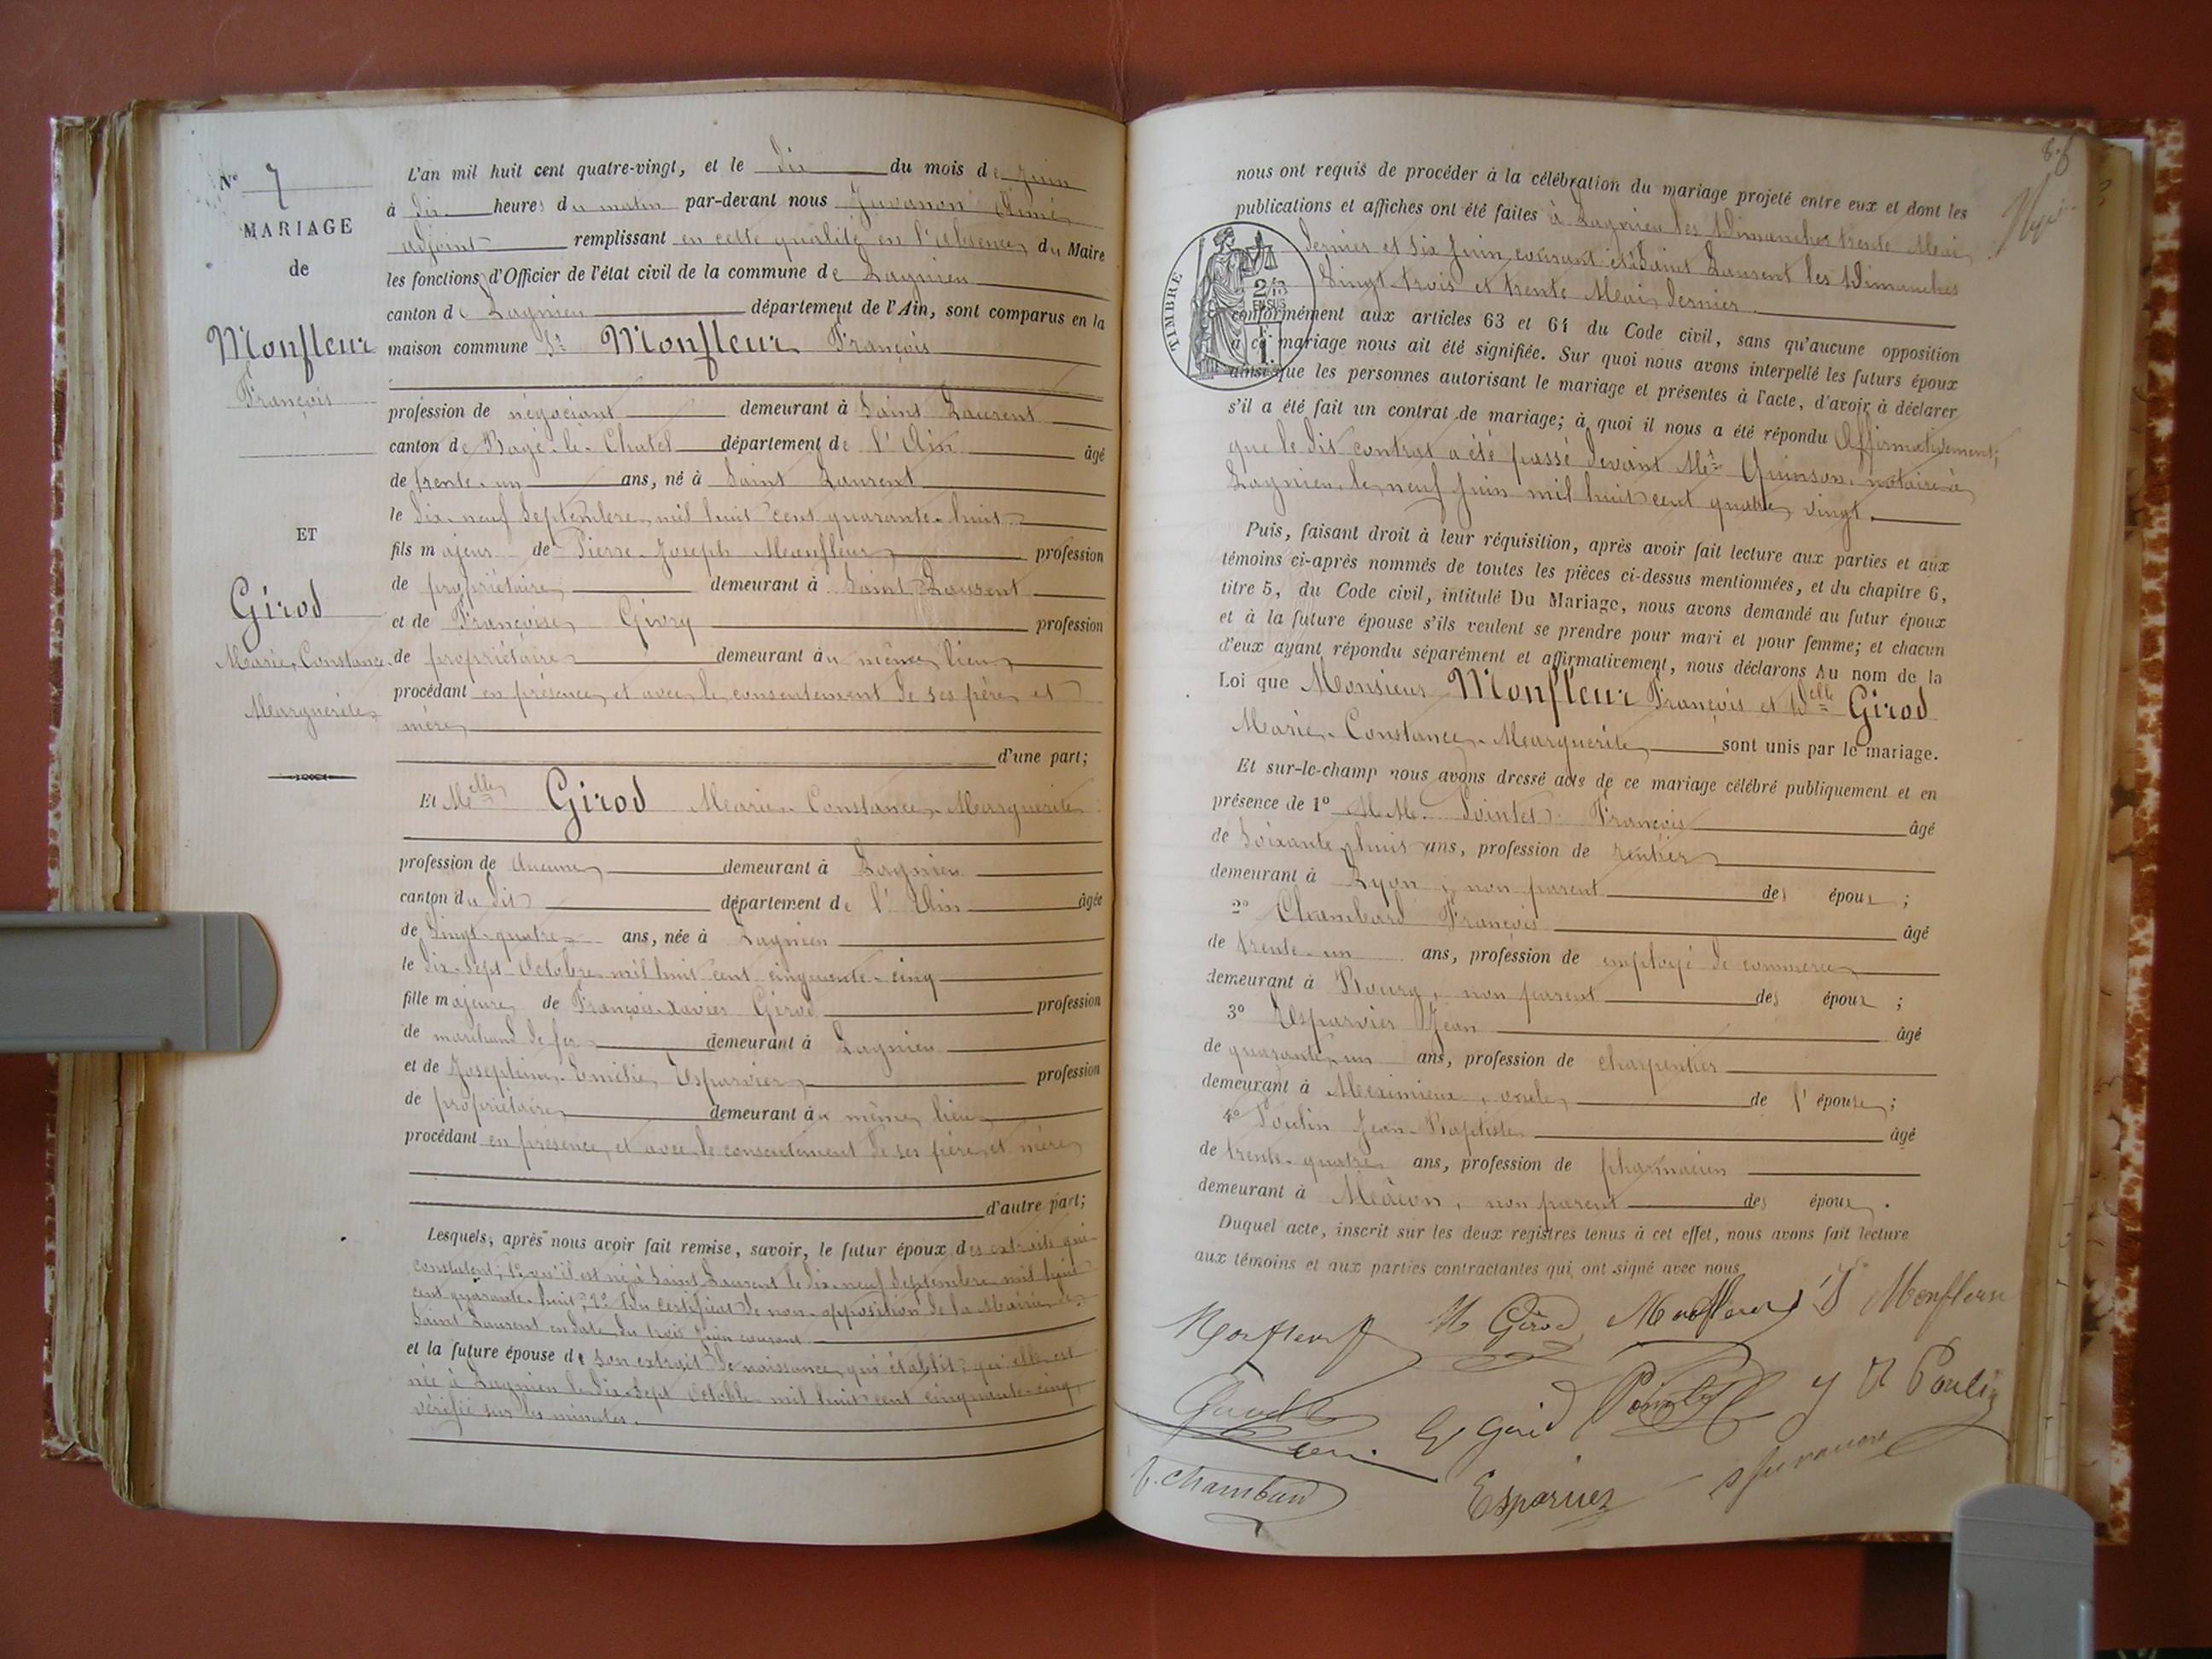 N° 7
MARIAGE
de
Monfleur
François
ET
Girod
Marie-Constance
Marguerite
L'an mil huit cent quatre-vingt, et le dix du mois de Juin
à dix heures du matin par-devant nous Juvanon Aimé
adjoint remplissant en cette qualité en l'absence du Maire
les fonctions d'Officier de l'état civil de la commune de Lagnieu
canton de Lagnieu département de l'Ain, sont comparus en la
maison commune Sr Monfleur François
profession de négociant demeurant à Saint Laurent
canton de Bagé-le-Chatel département de l'Ain âgé
de trente-un ans, né à Saint Laurent
le dix-neuf Septembre mil huit cent quarante-huit
fils majeur de Pierre-Joseph Monfleur profession
de propriétaire demeurant à Saint Laurent
et de Françoise Givry profession
de propriétaire demeurant au même lieu
procédant en présence et avec le consentement de ses père et
mère
d'une part;
Et Melle Girod Marie-Constance-Marguerite
profession de aucune demeurant à Lagnieu
canton du dit département de l'Ain âgée
de vingt-quatre ans, née à Lagnieu
le dix-sept Octobre mil huit cent cinquante-cinq
fille majeure de François-Xavier Girod profession
de marchand de fer demeurant à Lagnieu
et de Josephine-Emélie Esparvier profession
de propriétaire demeurant au même lieu
procédant en présence et avec le consentement de ses père et mère
d'autre part;
Lesquels, après nous avoir fait remise, savoir, le futur époux des extraits qui
constatent; 1° qu'il est né à Saint Laurent le dix-neuf Septembre mil huit
cent quarante-huit; 2° Un certificat de non-opposition de la Mairie de
Saint Laurent en date du trois Juin courant.
et la future épouse de son extrait de naissance qui établit qu'elle est
née à Lagnieu le dix-sept Octobre mil huit cent cinquante-cinq,
vérifié sur les minutes.
86
nous ont requis de procéder à la célébration du mariage projeté entre eux et dont les
publications et affiches ont été faites à Lagnieu les Dimanches trente Mai
dernier et six Juin courant et à Saint Laurent les Dimanches
vingt trois et trente Mai dernier.
TIMBRE
2/10
EN SUS
F.
1.
conformément aux articles 63 et 64 du Code civil, sans qu'aucune opposition
à ce mariage nous ait été signifiée. Sur quoi nous avons interpellé les futurs époux
ainsi que les personnes autorisant le mariage et présentes à l'acte, d'avoir à déclarer
s'il a été fait un contrat de mariage; à quoi il nous a été répondu Affirmativement;
que le dit contrat a été passé devant Me Quinson, notaire à
Lagnieu, le neuf Juin mil huit cent quatre vingt.
Puis, faisant droit à leur réquisition, après avoir fait lecture aux parties et aux
témoins ci-après nommés de toutes les pièces ci-dessus mentionnées, et du chapitre 6,
titre 5, du Code civil, intitulé Du Mariage, nous avons demandé au futur époux
et à la future épouse s'ils veulent se prendre pour mari et pour femme; et chacun
d'eux ayant répondu séparément et affirmativement, nous déclarons Au nom de la
Loi que Monsieur Monfleur François et Delle Girod
Marie-Constance-Marguerite sont unis par le mariage.
Et sur-le-champ nous avons dressé acte de ce mariage célébré publiquement et en
présence de 1° MM. Pointet François âgé
de soixante-huit ans, profession de rentier
demeurant à Lyon, non parent des époux;
2° Chambard François âgé
de trente-un ans, profession de employé de commerce
demeurant à Bourg, non parent des époux;
3° Esparvier Jean âgé
de quarante-un ans, profession de charpentier
demeurant à Meximieux, oncle de l'épouse;
4° Poulin Jean-Baptiste âgé
de trente-quatre ans, profession de pharmacien
demeurant à Mâcon, non parent des époux.
Duquel acte, inscrit sur les deux registres tenus à cet effet, nous avons fait lecture
aux témoins et aux parties contractantes qui ont signé avec nous
Monfleur M Girod Monfleur Monfleur
E Girod Pointet J B Poulin
f. Chambard Esparvier Juvanon